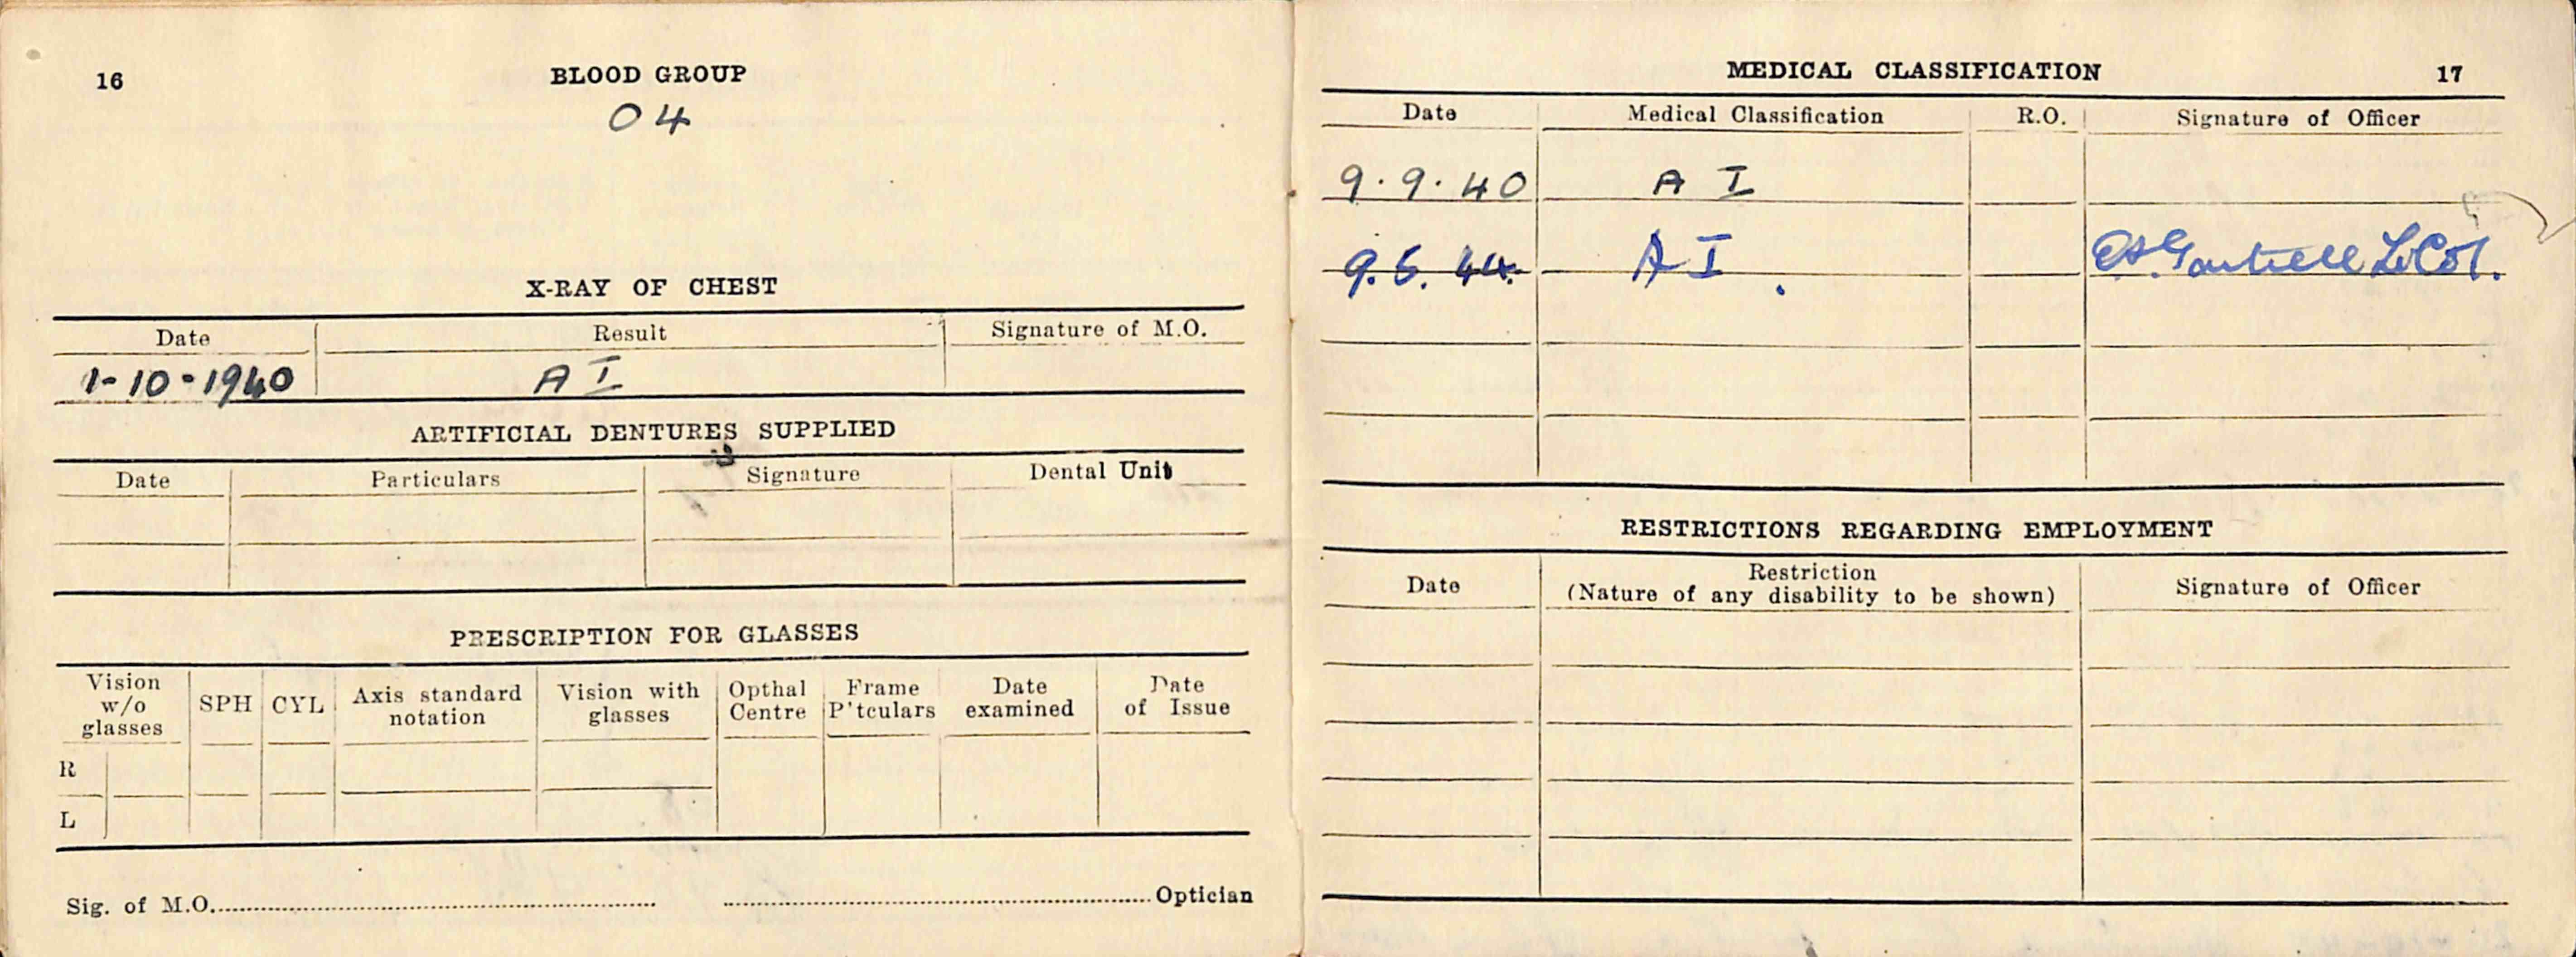 16
BLOOD GROUP
O 4
X-RAY OF CHEST
Date Result Signature of M.O.
1-10-1940 A I
ARTIFICIAL DENTURES SUPPLIED
Date Particulars Signature Dental Unit
PRESCRIPTION FOR GLASSES
Vision w/o glasses SPH CYL Axis standard notation Vision with glasses Opthal Centre Frame P'tculars Date examined Date of Issue
R
L
Sig. of M.O. Optician
MEDICAL CLASSIFICATION 17
Date Medical Classification R.O. Signature of Officer
9.9.40 A I
9.5.44. A I. Lt Col.
RESTRICTIONS REGARDING EMPLOYMENT
Date Restriction (Nature of any disability to be shown) Signature of Officer